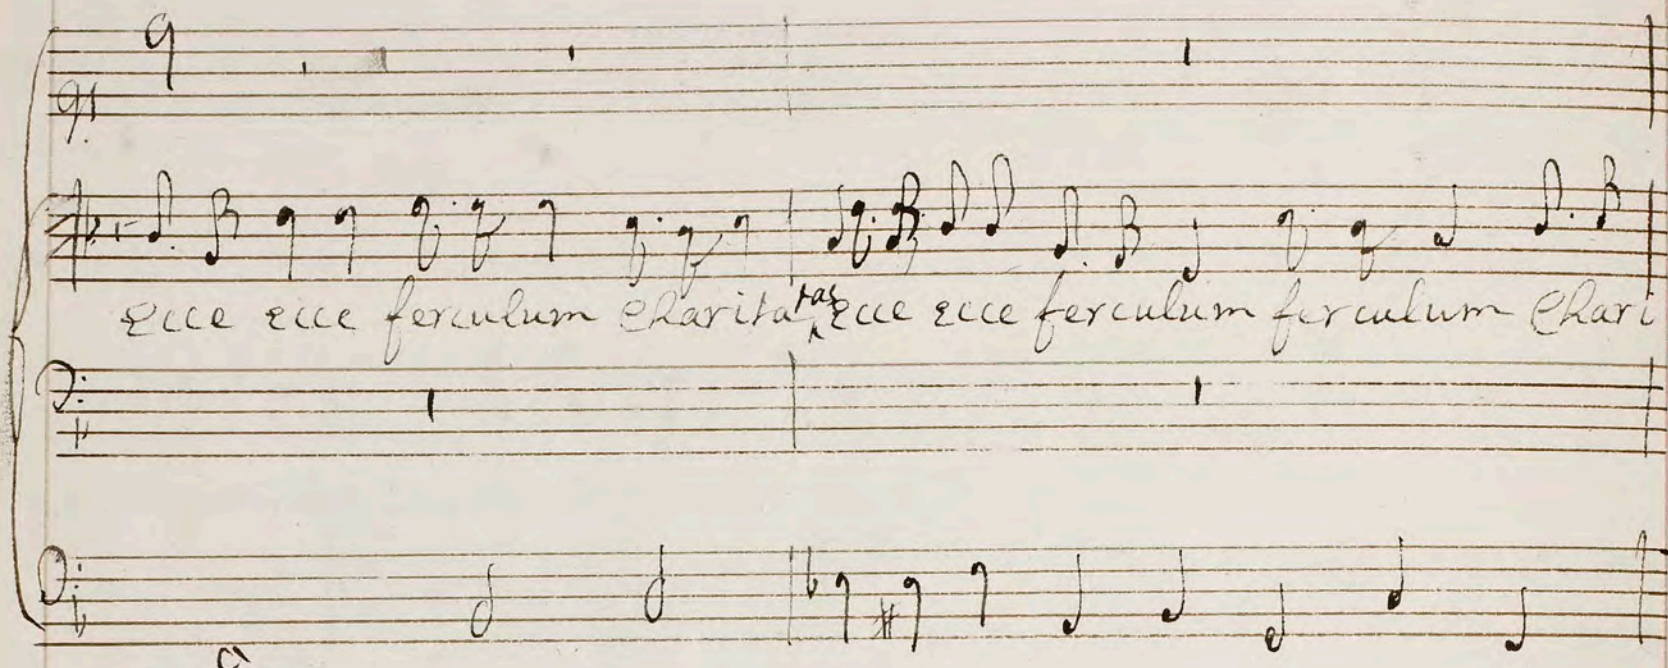 Ecce ecce ferculum Charitatas Ecce ecce ferculum ferculum Chari